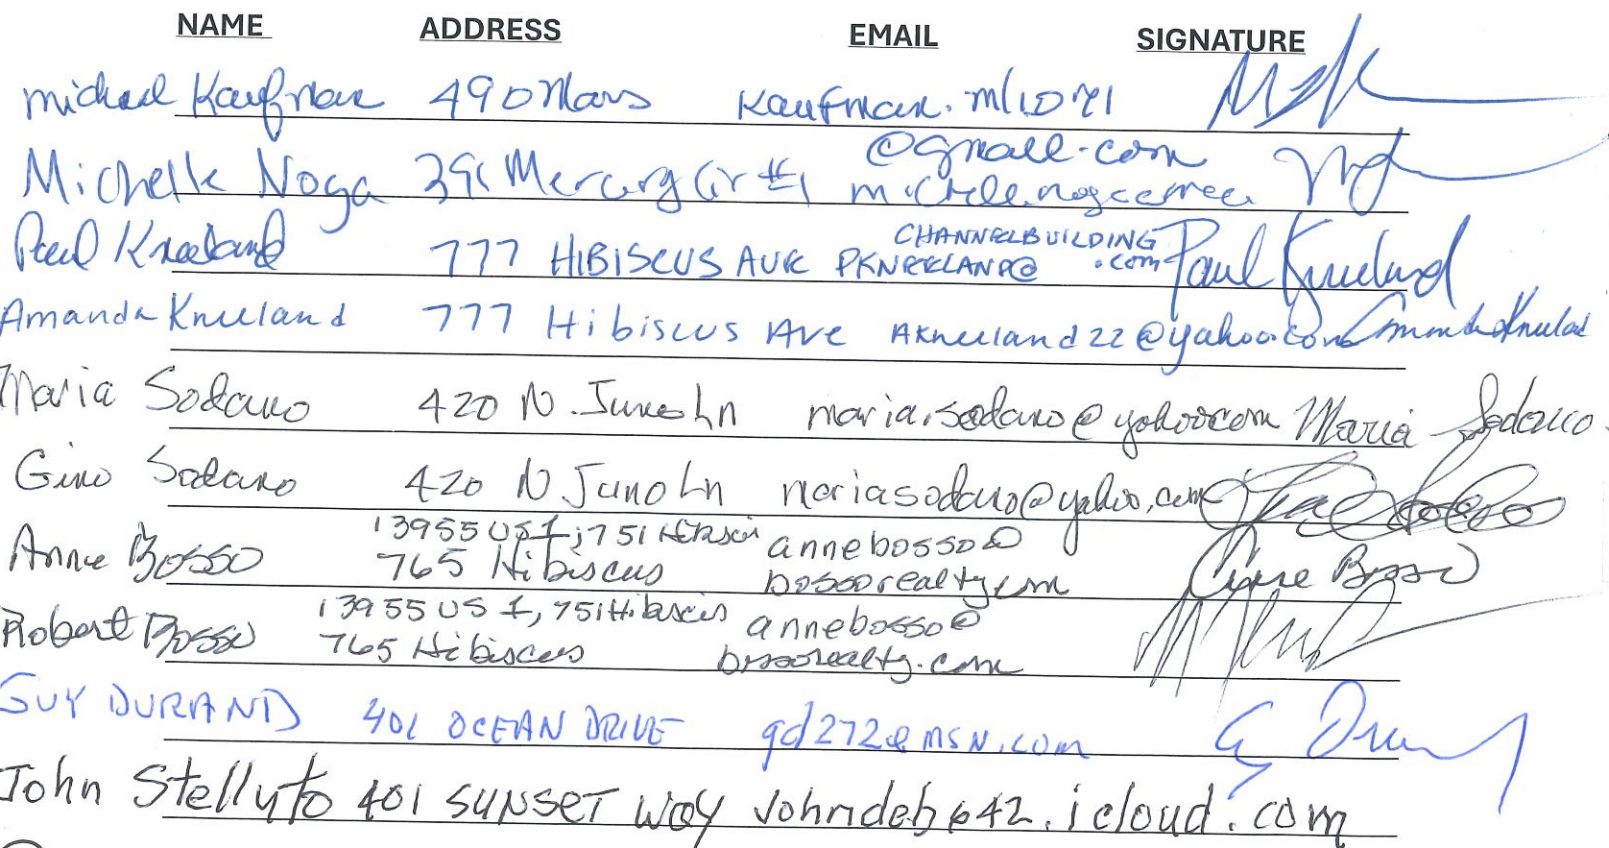 NAME ADDRESS EMAIL SIGNATURE
Michael Kaufman 490 Mars Kaufman.m11071
@gmail.com
Michelle Noga 391 Mercury Cir #1
CHANNELBUILDING
Paul Kneeland 777 HIBISCUS AVE PKNEELAND@ .com Paul Kneeland
Amanda Kneeland 777 Hibiscus Ave AKneeland22@yahoo.com Amanda Kneeland
Maria Sodano 420 N. Juno Ln maria.sodano@yahoo.com Maria Sodano
Gino Sodano 420 N Juno Ln mariasodano@yahoo.com
13955 US 1, 751 Hibiscus annebosso@
Anne Bosso 765 Hibiscus bossorealty.com Anne Bosso
13955 US 1, 751 Hibiscus annebosso@
Robert Bosso 765 Hibiscus bossorealty.com
GUY DURAND 401 OCEAN DRIVE gd272@MSN.com
John Stellyto 401 SUNSET WAY Johndeb642.icloud.com